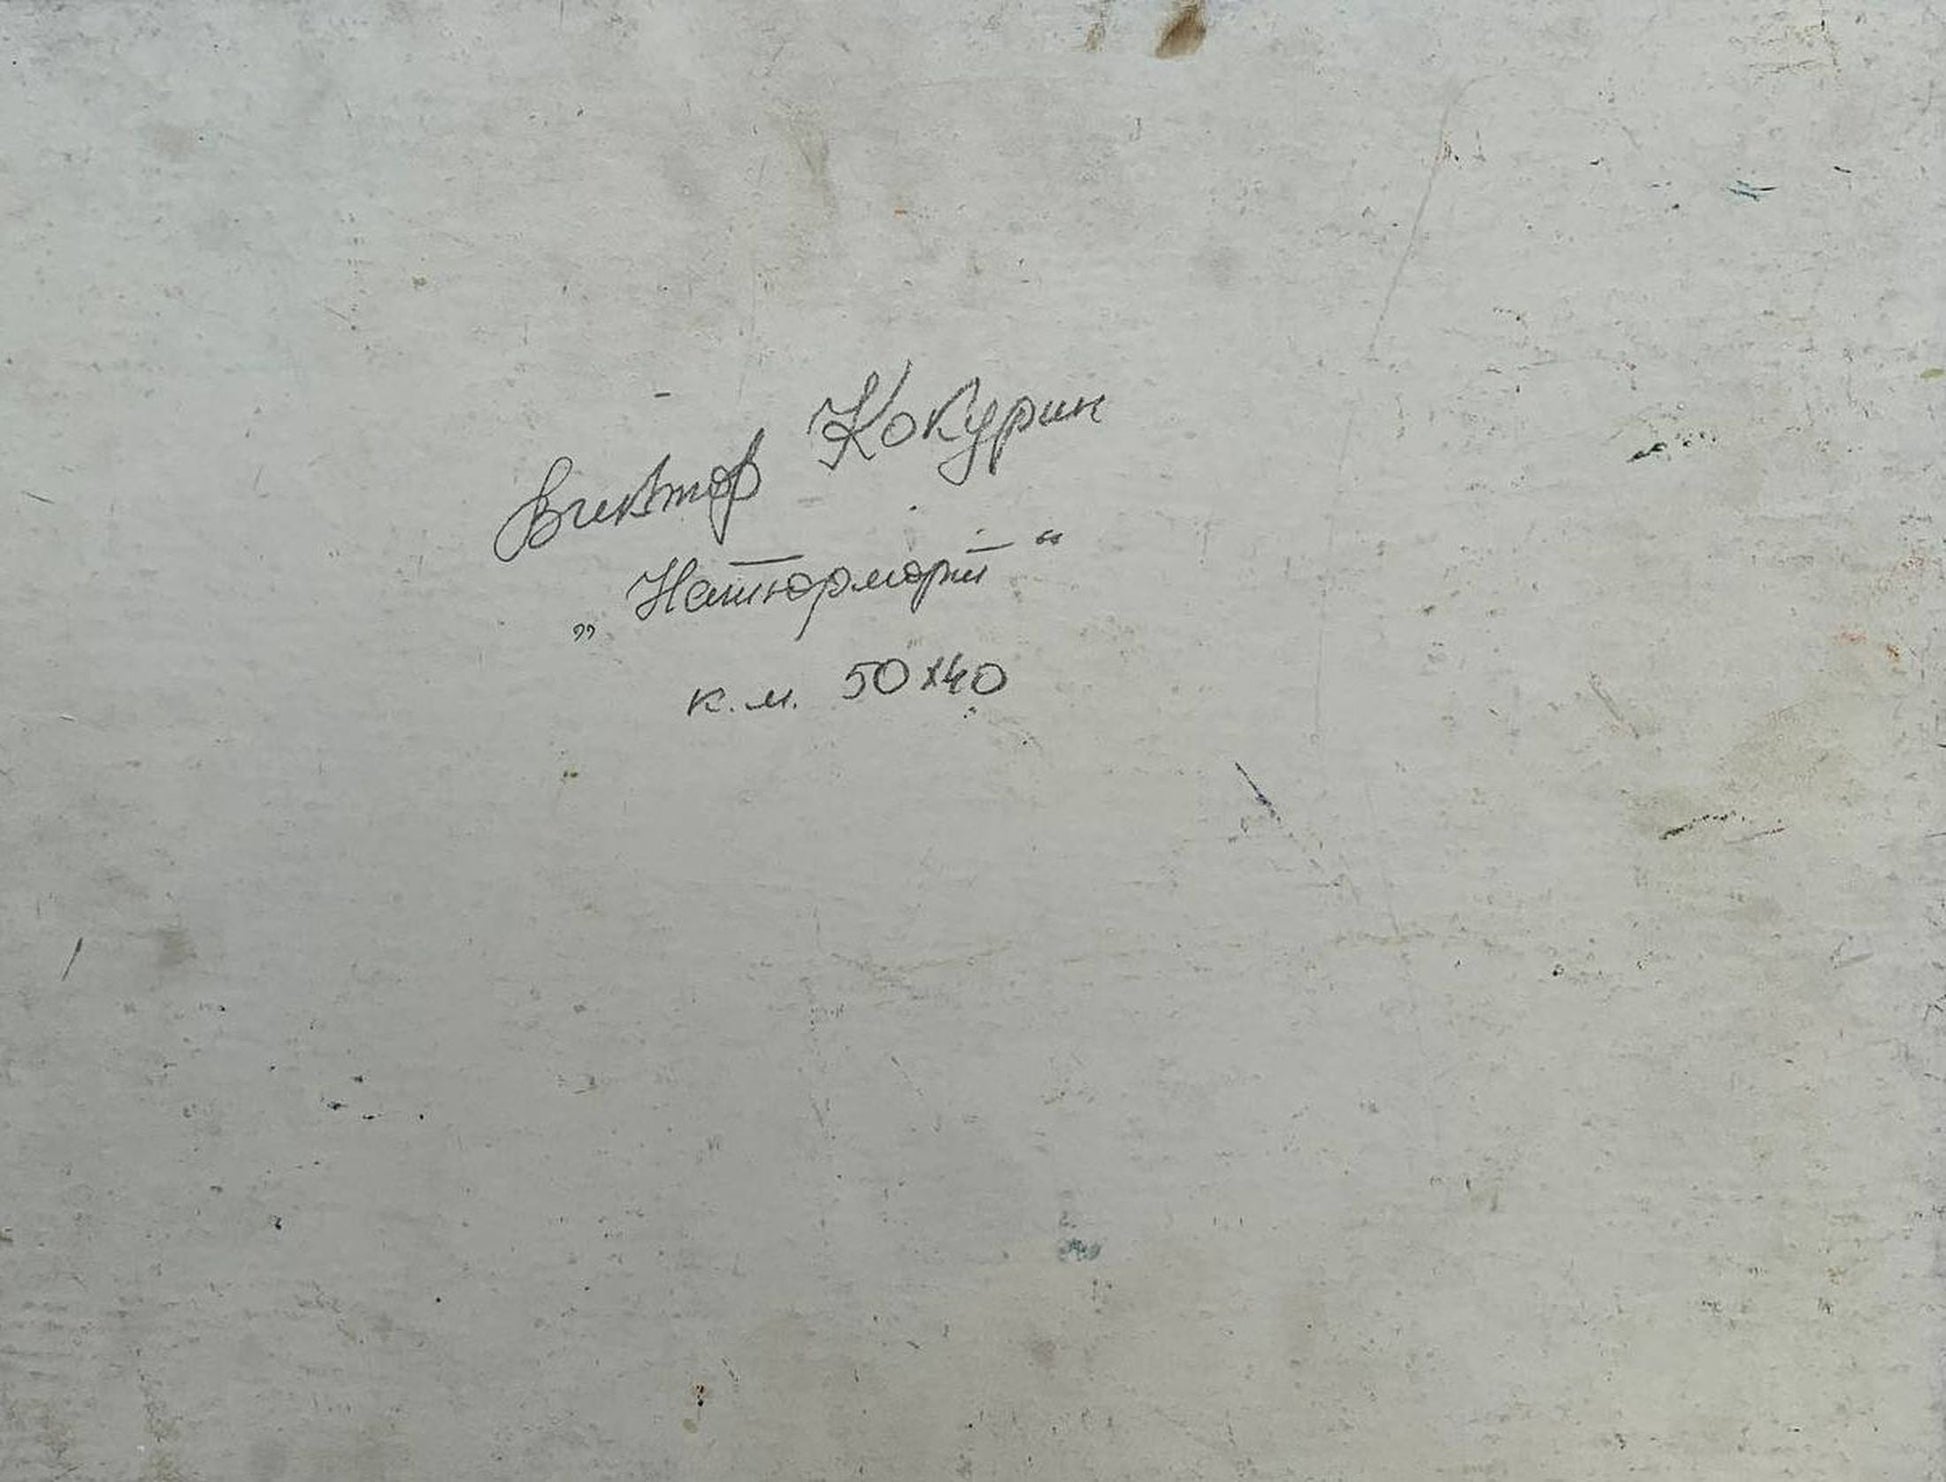 Виктор Кокурин
„Натюрморт“
к.м. 50х40